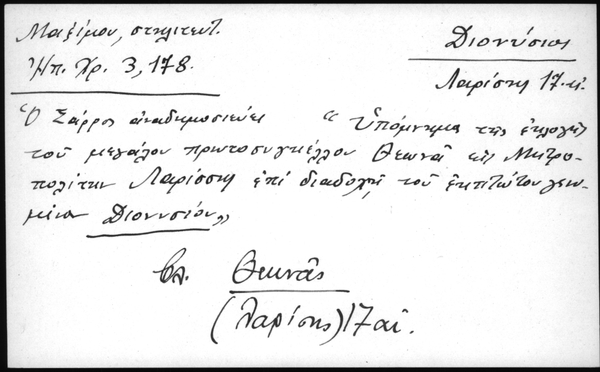 Μαξίμου, στηλιτευτ.
Ἠπ. Χρ. 3, 178.
Διονύσιος
Λαρίσης 17. αἰ.
Ὁ Σάρρος ἀναδημοσιεύει "Ὑπόμνημα τῆς ἐκλογῆς
τοῦ μεγάλου πρωτοσυγκέλλου Θεωνᾶ εἰς Μητρο-
πολίτην Λαρίσσης ἐπί διαδοχῇ τοῦ ἐκπτώτου γενο-
μένου Διονυσίου"
βλ. Θεωνᾶς
(Λαρίσης) 17 αἰ.